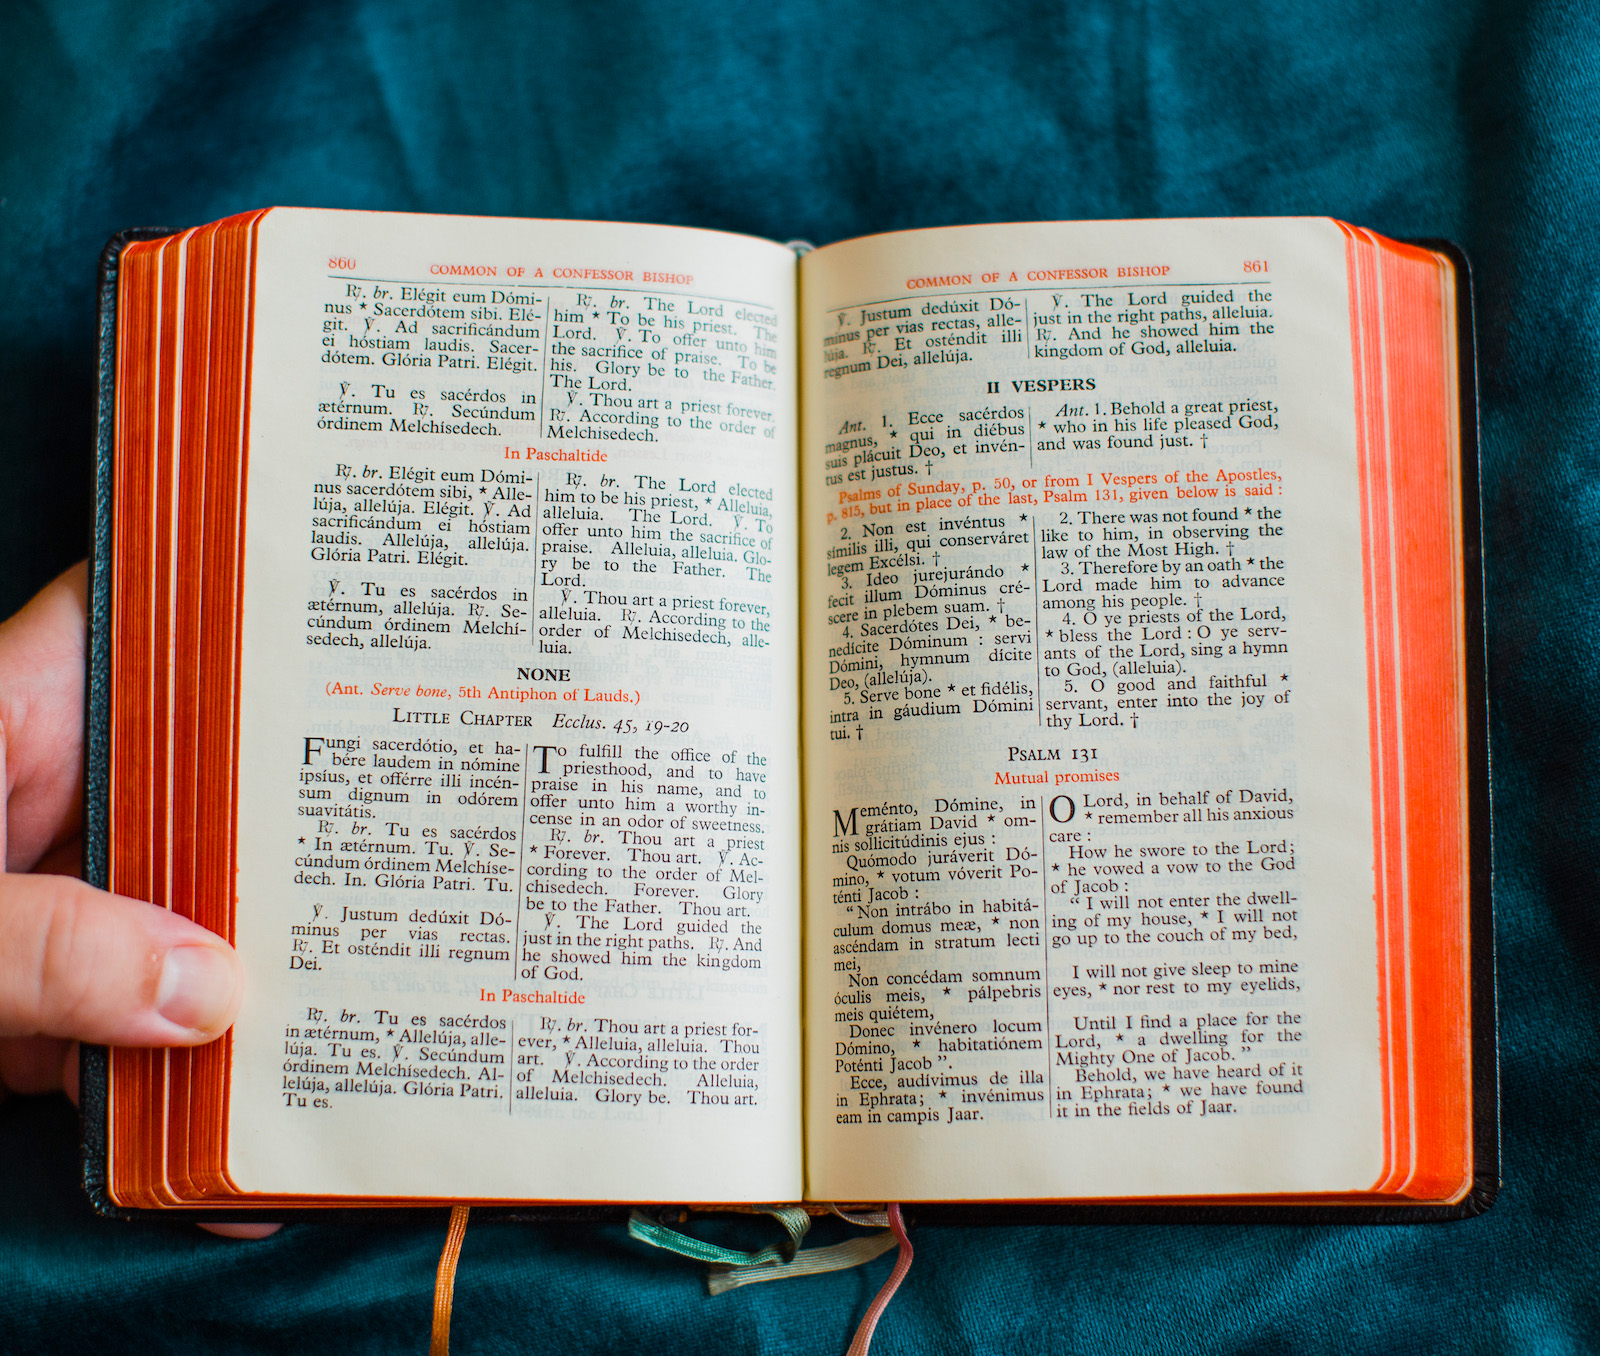 860
COMMON OF A CONFESSOR BISHOP
℟. br. Elégit eum Dómi-
nus * Sacerdótem sibi. Elé-
git. ℣. Ad sacrificándum
ei hóstiam laudis. Sacer-
dótem. Glória Patri. Elégit.
℣. Tu es sacérdos in
ætérnum. ℟. Secúndum
órdinem Melchísedech.
℟. br. The Lord elected
him * To be his priest. The
Lord. ℣. To offer unto him
the sacrifice of praise. To be
his. Glory be to the Father.
The Lord.
℣. Thou art a priest forever.
℟. According to the order of
Melchisedech.
In Paschaltide
℟. br. Elégit eum Dómi-
nus sacerdótem sibi, * Alle-
lúja, allelúja. Elégit. ℣. Ad
sacrificándum ei hóstiam
laudis. Allelúja, allelúja.
Glória Patri. Elégit.
℣. Tu es sacérdos in
ætérnum, allelúja. ℟. Se-
cúndum órdinem Melchí-
sedech, allelúja.
℟. br. The Lord elected
him to be his priest, * Alleluia,
alleluia. The Lord. ℣. To
offer unto him the sacrifice of
praise. Alleluia, alleluia. Glo-
ry be to the Father. The
Lord.
℣. Thou art a priest forever,
alleluia. ℟. According to the
order of Melchisedech, alle-
luia.
NONE
(Ant. Serve bone, 5th Antiphon of Lauds.)
LITTLE CHAPTER Ecclus. 45, 19-20
Fungi sacerdótio, et ha-
bére laudem in nómine
ipsíus, et offérre illi incén-
sum dignum in odórem
suavitátis.
℟. br. Tu es sacérdos
* In ætérnum. Tu. ℣. Se-
cúndum órdinem Melchíse-
dech. In. Glória Patri. Tu.
℣. Justum dedúxit Dó-
minus per vias rectas.
℟. Et osténdit illi regnum
Dei.
To fulfill the office of the
priesthood, and to have
praise in his name, and to
offer unto him a worthy in-
cense in an odor of sweetness.
℟. br. Thou art a priest
* Forever. Thou art. ℣. Ac-
cording to the order of Mel-
chisedech. Forever. Glory
be to the Father. Thou art.
℣. The Lord guided the
just in the right paths. ℟. And
he showed him the kingdom
of God.
In Paschaltide
℟. br. Tu es sacérdos
in ætérnum, * Allelúja, alle-
lúja. Tu es. ℣. Secúndum
órdinem Melchísedech. Al-
lelúja, allelúja. Glória Patri.
Tu es.
℟. br. Thou art a priest for-
ever, * Alleluia, alleluia. Thou
art. ℣. According to the order
of Melchisedech. Alleluia,
alleluia. Glory be. Thou art.
COMMON OF A CONFESSOR BISHOP
861
℣. Justum dedúxit Dó-
minus per vias rectas, alle-
lúja. ℟. Et osténdit illi
regnum Dei, allelúja.
℣. The Lord guided the
just in the right paths, alleluia.
℟. And he showed him the
kingdom of God, alleluia.
II VESPERS
Ant. 1. Ecce sacérdos
magnus, * qui in diébus
suis plácuit Deo, et invén-
tus est justus. †
Ant. 1. Behold a great priest,
* who in his life pleased God,
and was found just. †
Psalms of Sunday, p. 50, or from I Vespers of the Apostles,
p. 815, but in place of the last, Psalm 131, given below is said :
2. Non est invéntus *
símilis illi, qui conserváret
legem Excélsi. †
3. Ideo jurejurándo *
fecit illum Dóminus cré-
scere in plebem suam. †
4. Sacerdótes Dei, * be-
nedícite Dóminum : servi
Dómini, hymnum dícite
Deo, (allelúja).
5. Serve bone * et fidélis,
intra in gáudium Dómini
tui. †
2. There was not found * the
like to him, in observing the
law of the Most High. †
3. Therefore by an oath * the
Lord made him to advance
among his people. †
4. O ye priests of the Lord,
* bless the Lord : O ye serv-
ants of the Lord, sing a hymn
to God, (alleluia).
5. O good and faithful *
servant, enter into the joy of
thy Lord. †
PSALM 131
Mutual promises
Meménto, Dómine, in
grátiam David * om-
nis sollicitúdinis ejus :
Quómodo juráverit Dó-
mino, * votum vóverit Po-
ténti Jacob :
“ Non intrábo in habitá-
culum domus meæ, * non
ascéndam in stratum lecti
mei,
Non concédam somnum
óculis meis, * pálpebris
meis quiétem,
Donec invénero locum
Dómino, * habitatiónem
Poténti Jacob ”.
Ecce, audívimus de illa
in Ephrata; * invénimus
eam in campis Jaar.
O Lord, in behalf of David,
* remember all his anxious
care :
How he swore to the Lord;
* he vowed a vow to the God
of Jacob :
“ I will not enter the dwell-
ing of my house, * I will not
go up to the couch of my bed,
I will not give sleep to mine
eyes, * nor rest to my eyelids,
Until I find a place for the
Lord, * a dwelling for the
Mighty One of Jacob. ”
Behold, we have heard of it
in Ephrata; * we have found
it in the fields of Jaar.